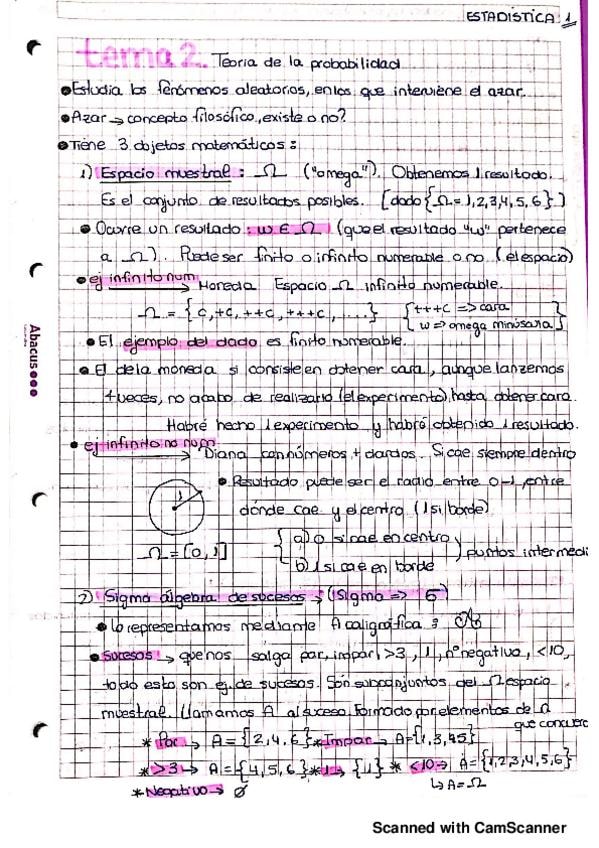 ESTADÍSTICA 1
tema 2. Teoría de la probabilidad
• Estudia los fenómenos aleatorios, en los que interviene el azar.
• Azar → concepto filosófico, existe o no?
• Tiene 3 objetos matemáticos:
1) Espacio muestral: Ω ("omega"). Obtenemos 1 resultado.
Es el conjunto de resultados posibles. [dado {Ω = 1,2,3,4,5,6}]
• Ocurre un resultado: w ∈ Ω (que el resultado "w" pertenece
a Ω). Puede ser finito o infinito numerable o no (el espacio)
• ej infinito num → Moneda Espacio Ω infinito numerable.
Ω = {c, +c, ++c, +++c, ....} {+++c => cara
w => omega minúscula}
• El ejemplo del dado es finito numerable.
• El de la moneda si consiste en obtener cara, aunque lanzemos
4 veces, no acabo de realizarlo (el experimento) hasta obtener cara.
Habré hecho 1 experimento y habré obtenido 1 resultado.
• ej infinito no num → Diana con números + dardos. Si cae siempre dentro
• Resultado puede ser el radio entre 0-1, entre
dónde cae y el centro (1 si borde)
1
Ω = [0,1] {a) 0 si cae en centro
b) 1 si cae en borde } puntos intermedi
2) Sigma álgebra de sucesos: (Sigma => σ)
• Lo representamos mediante A caligráfica: 𝒜
• Sucesos → que nos salga par, impar, >3, 1, nº negativo, <10,
todo esto son ej. de sucesos. Son subconjuntos del Ω espacio
muestral. Llamamos A al suceso formado por elementos de Ω
* Par → A = {2,4,6} * Impar → A={1,3,5}
* >3 → A = {4,5,6} * 1 → {1} * <10 → A={1,2,3,4,5,6}
↳ A=Ω
* Negativo → ∅
Abacus
Scanned with CamScanner